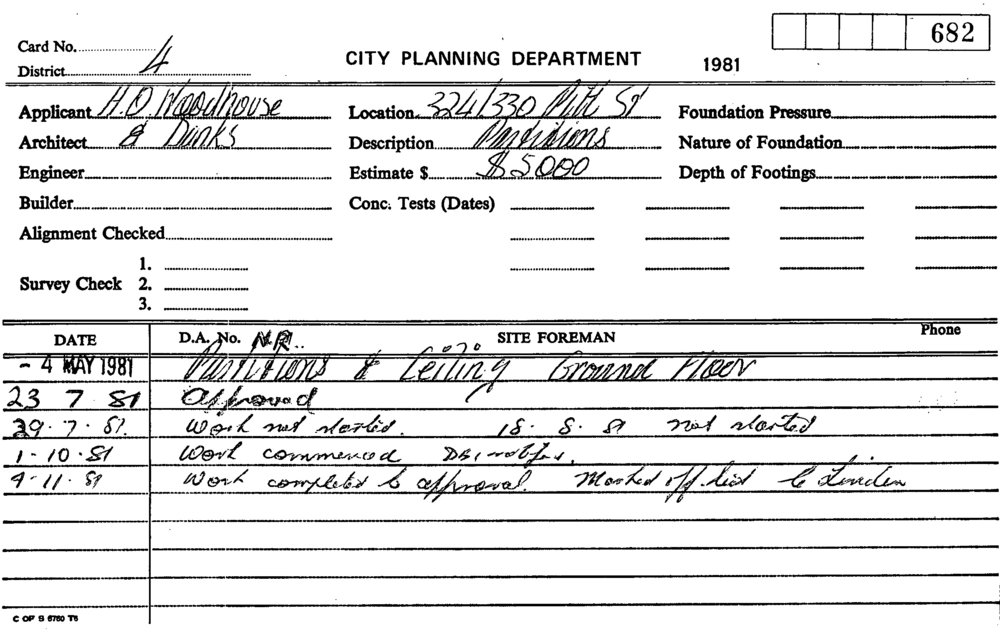 682
Card No. 4
District
CITY PLANNING DEPARTMENT 1981
Applicant H.O. Woodhouse Location 324/330 Pitt St Foundation Pressure
Architect & Danks Description Partitions Nature of Foundation
Engineer Estimate $ $5000 Depth of Footings
Builder Conc. Tests (Dates)
Alignment Checked
1.
Survey Check 2.
3.
DATE D.A. No. N.R. SITE FOREMAN Phone
- 4 MAY 1981 Partitions & Ceiling Ground Floor
23 7 81 Approved
29.7.81. Work not started. 18.8.81 not started
1.10.81 Work commenced
9.11.81 Work completed to approval. Marked off list C Linden
C OF S 6760 T6